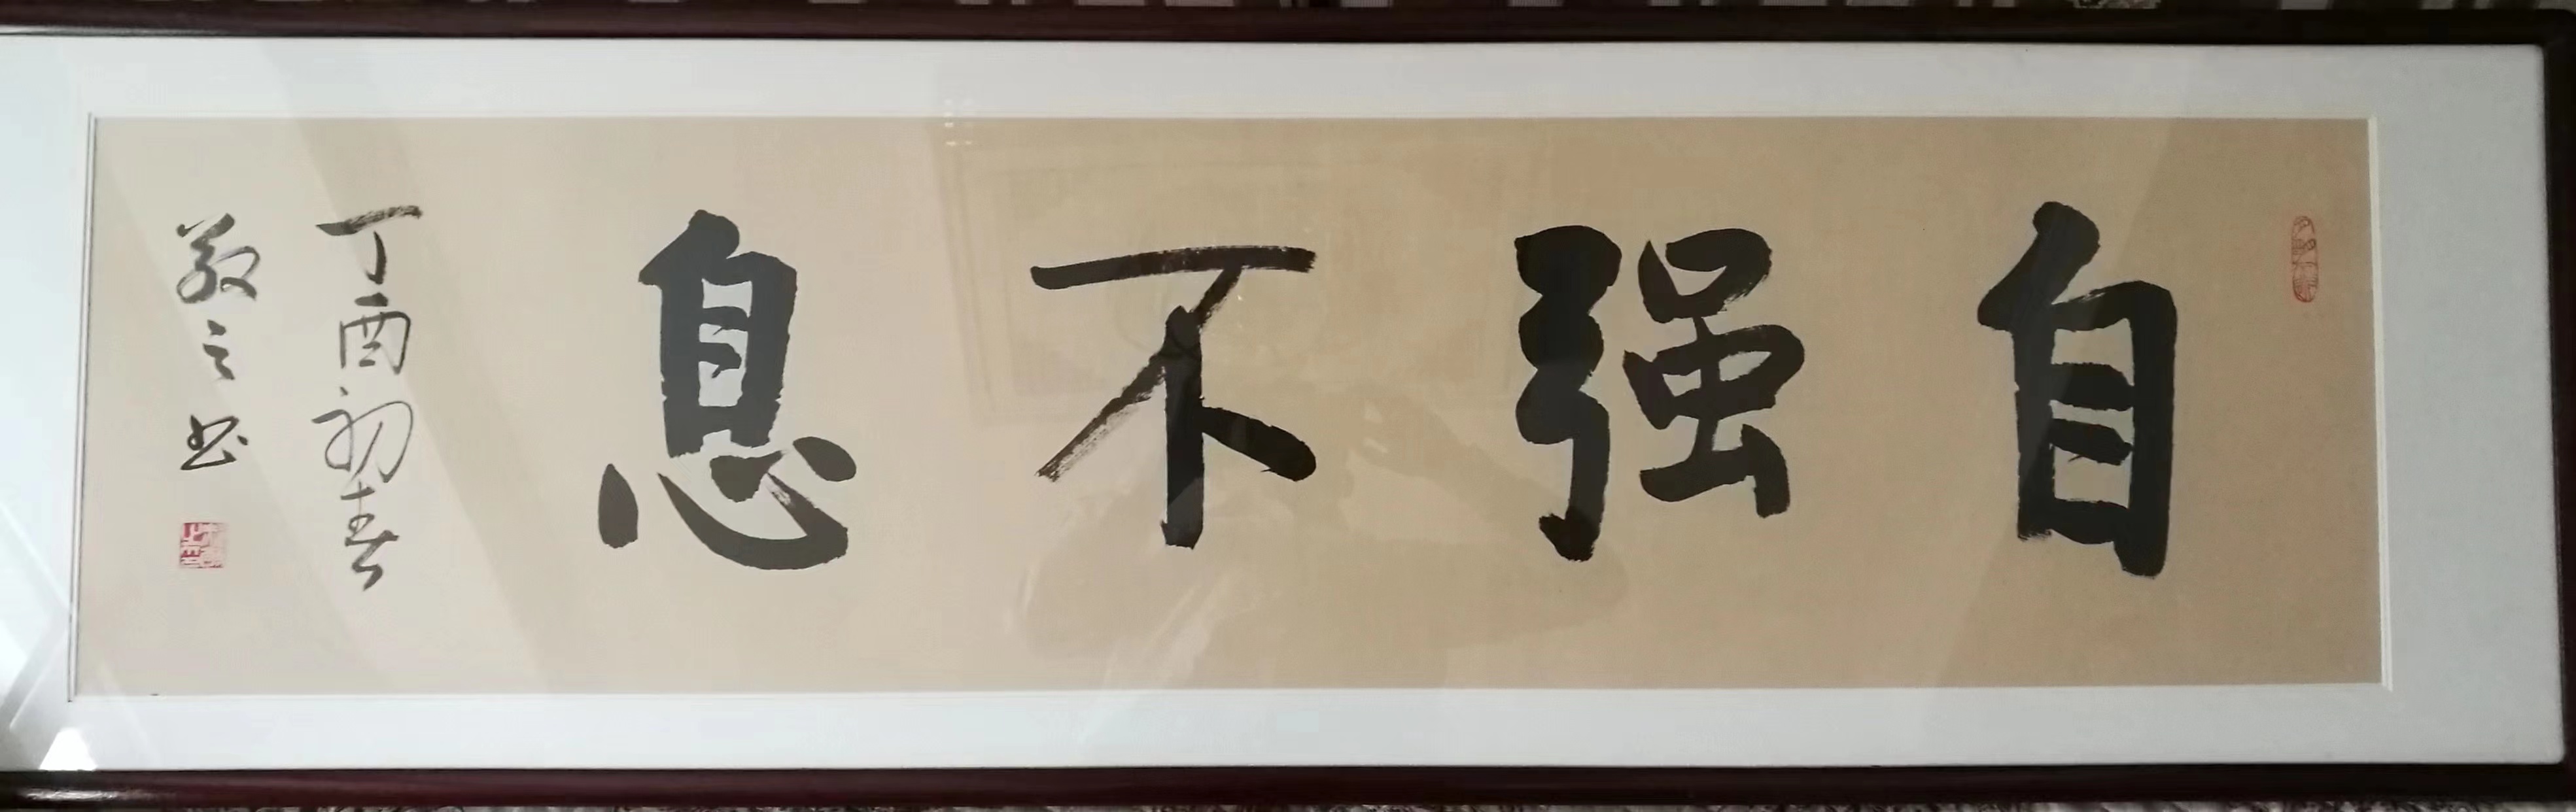 自强不息
丁酉初春
敬之书